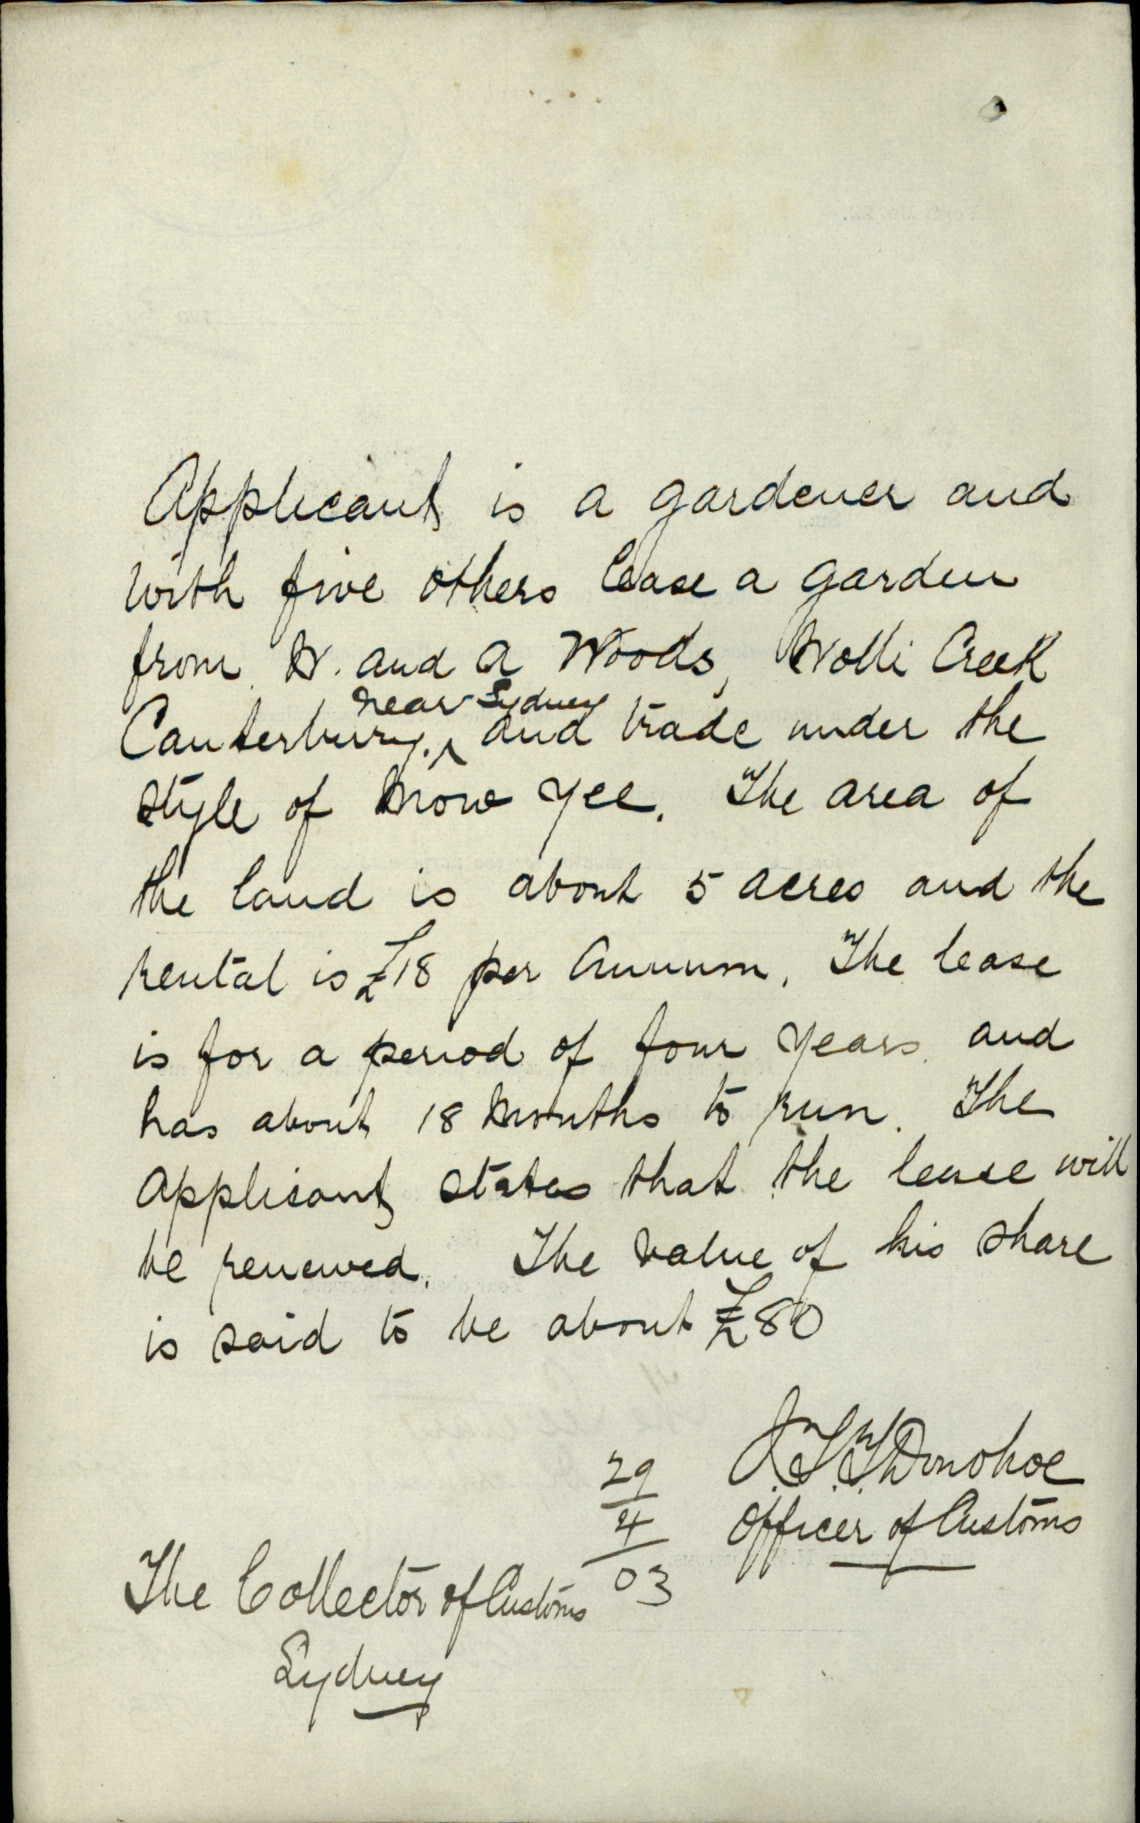 Applicant is a gardener and
with five others lease a garden
from W. and A Woods, Wolli Creek
near Sydney
Canterbury. ^ and trade under the
style of Mow Yee. The area of
the land is about 5 acres and the
rental is £18 per annum. The lease
is for a period of four years and
has about 18 months to run. The
applicant states that the lease will
be renewed. The value of his share
is said to be about £80
J.T.T. Donohoe
29
4
03
Officer of Customs
The Collector of Customs
Sydney